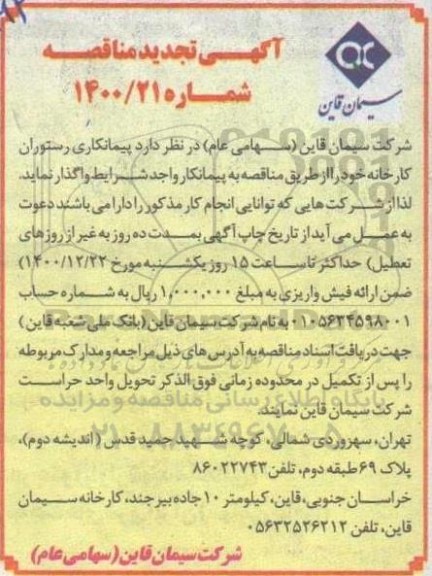 آگهی تجدید مناقصه
شماره ۱۴۰۰/۲۱
سیمان قاین
شرکت سیمان قاین (سهامی عام) در نظر دارد پیمانکاری رستوران
کارخانه خود را از طریق مناقصه به پیمانکار واجد شرایط واگذار نماید.
لذا از شرکت هایی که توانایی انجام کار مذکور را دارا می باشند دعوت
به عمل می آید از تاریخ چاپ آگهی بمدت ده روز به غیر از روزهای
تعطیل) حداکثر تا ساعت ۱۵ روز یکشنبه مورخ ۱۴۰۰/۱۲/۲۲)
ضمن ارائه فیش واریزی به مبلغ ۱,۰۰۰,۰۰۰ ریال به شماره حساب
۰۱۰۵۶۳۴۵۹۸۰۰۱ به نام شرکت سیمان قاین (بانک ملی شعبه قاین)
جهت دریافت اسناد مناقصه به آدرس های ذیل مراجعه و مدارک مربوطه
را پس از تکمیل در محدوده زمانی فوق الذکر تحویل واحد حراست
شرکت سیمان قاین نمایند.
تهران، سهروردی شمالی، کوچه شهید حمید قدس (اندیشه دوم)،
پلاک ۶۹ طبقه دوم، تلفن ۸۶۰۲۲۷۴۳
خراسان جنوبی، قاین، کیلومتر ۱۰ جاده بیرجند، کارخانه سیمان
قاین، تلفن ۰۵۶۳۲۵۲۶۲۱۲
شرکت سیمان قاین (سهامی عام)